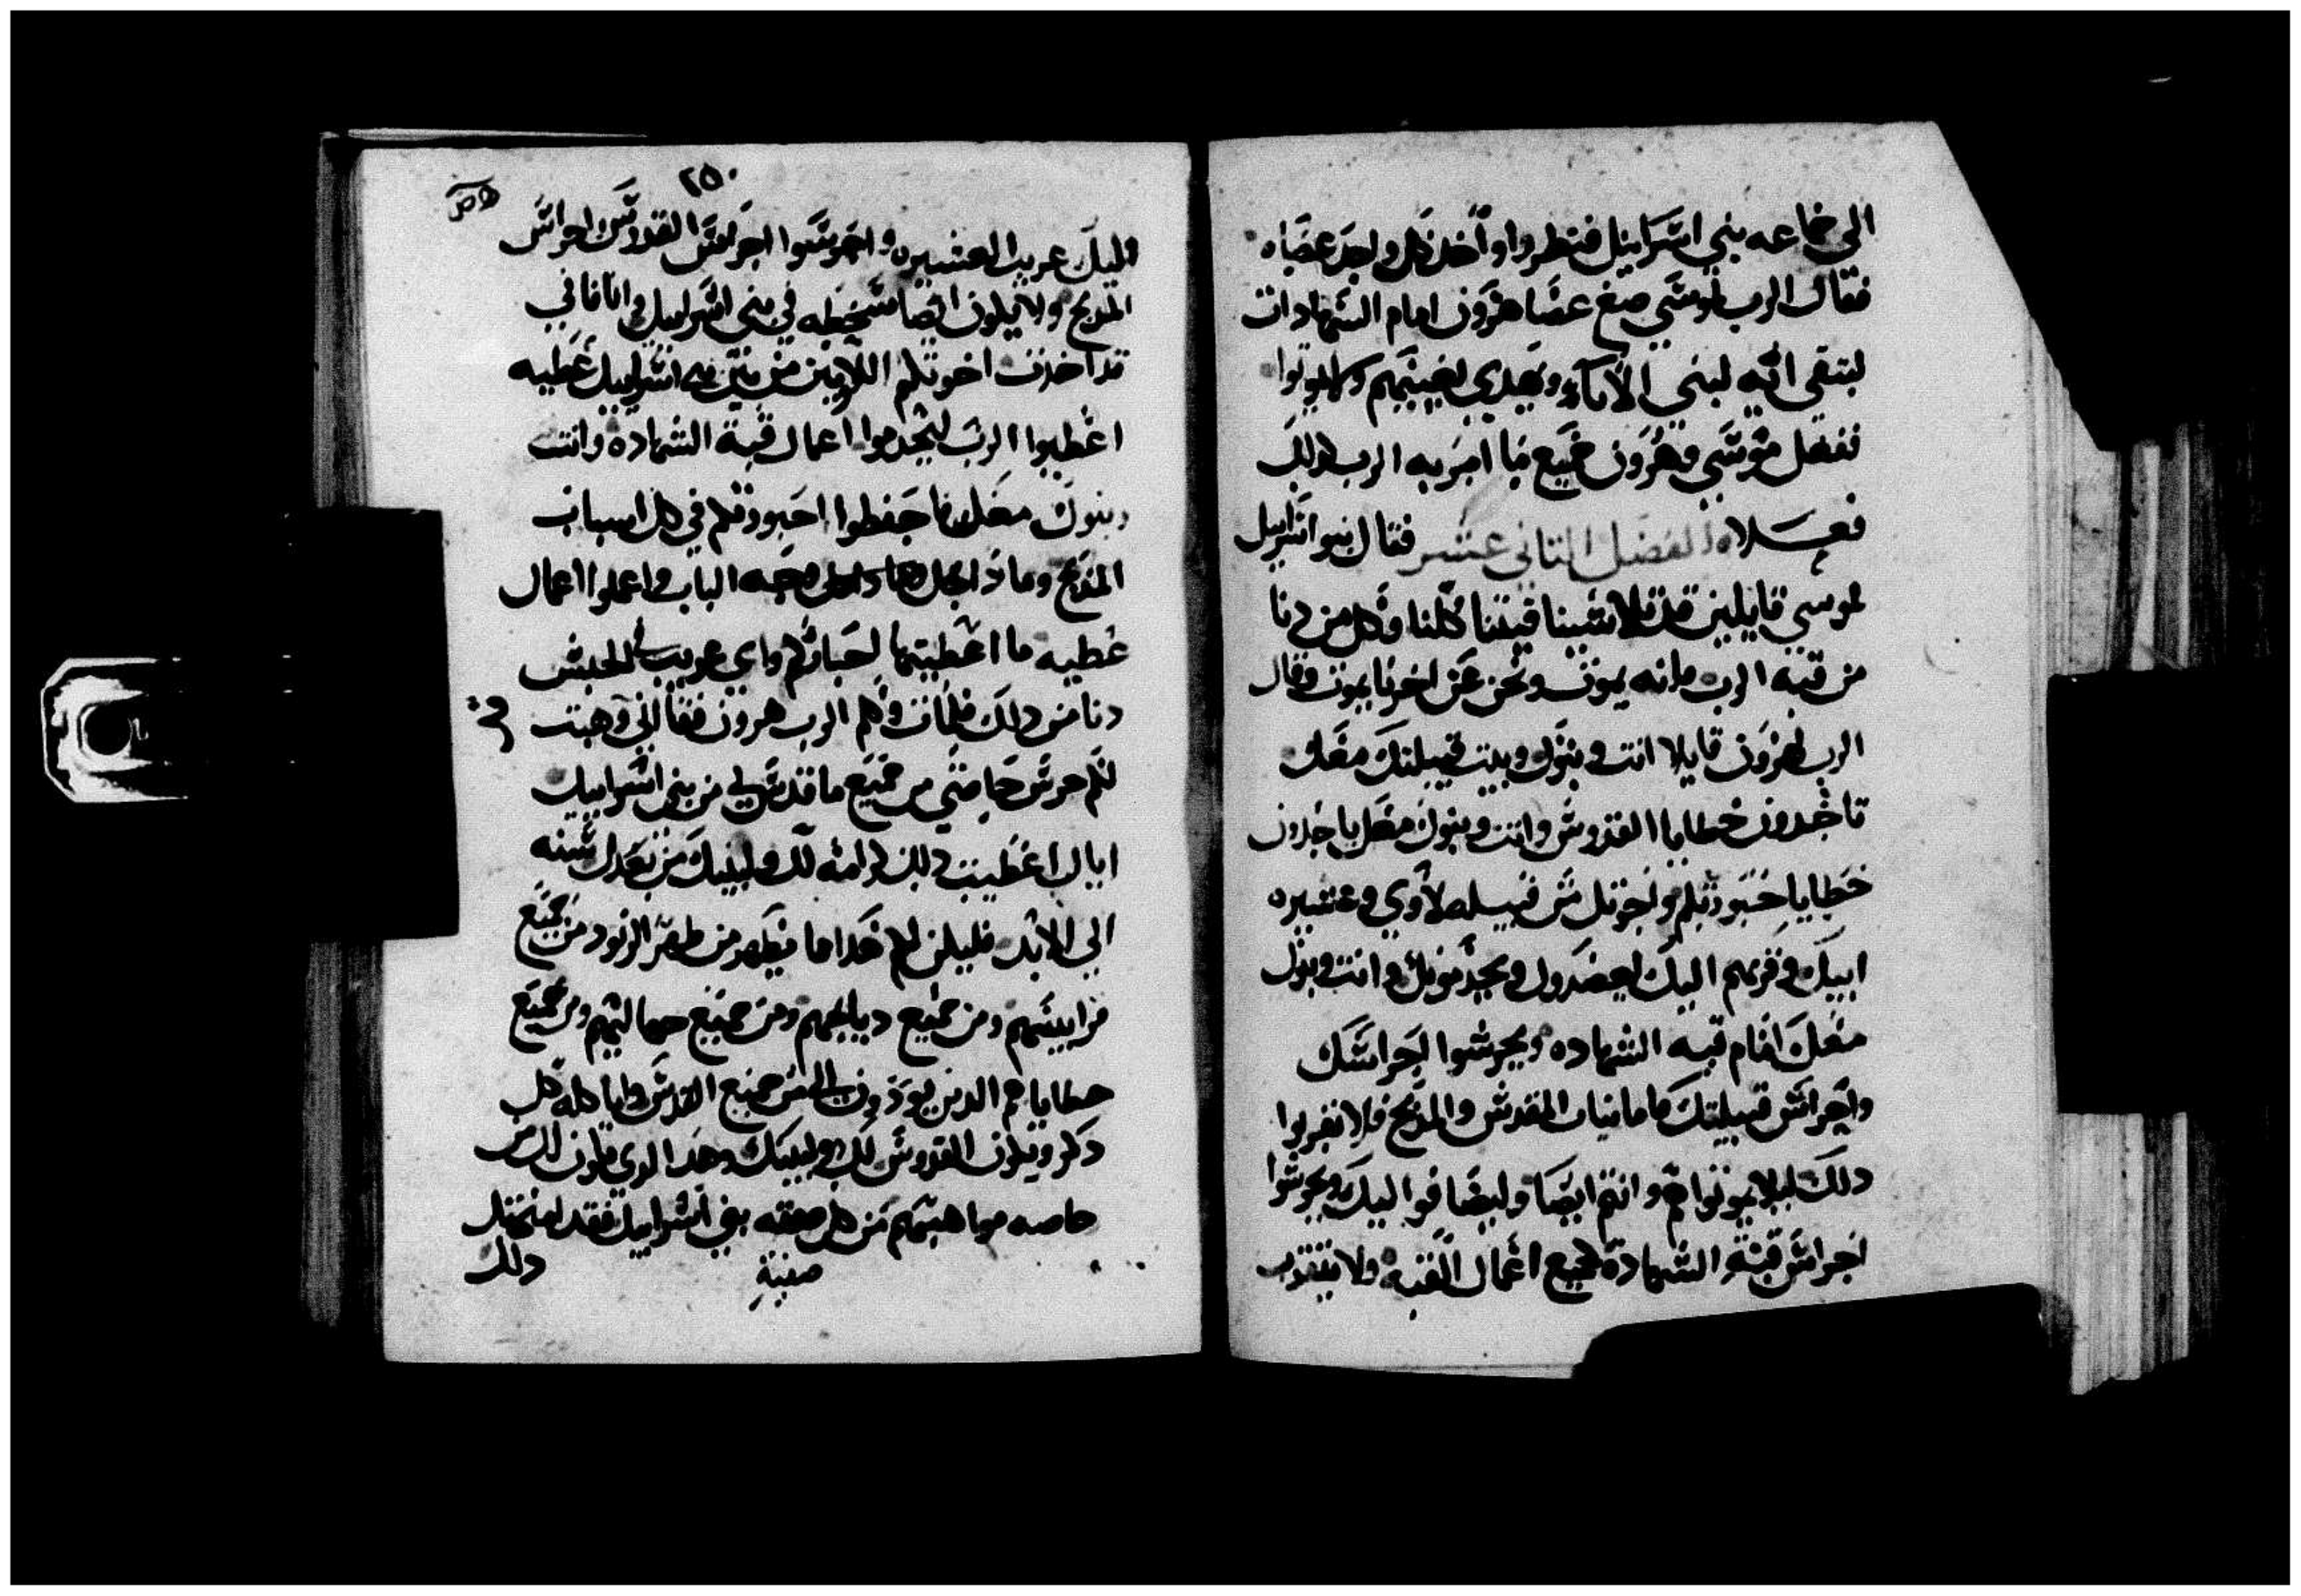 الي جماعه بني اسراييل فنظروا واخد كل واحد عصاه
فقال الرب لموسي ضع عصا هرون امام الشهادات
لتبقي ايه لبني الاباء ويهدي لغيبتهم ولا يموتوا
ففعل موسي وهرون جميع ما امر به الرب كدلك
فعلاه الفصل التاني عشر فقال بنو اسراييل
لموسي قايلين قد تلاشينا فنينا كلنا وكل من دنا
من قبه الرب فانه يموت ونحن عن اخرنا نموت وقال
الرب لهرون قايلا انت وبنوك وبيت قبيلتك معك
تاخدون خطايا القدوس وانت وبنوك معك ياخدون
خطايا حبورتكم واخوتك من قبيله لاوي وعشيره
ابيك وقربهم اليك ليعضدوك ويخدمونك وانت وبنوك
معك امام قبه الشهاده ويحرسوا احراسك
واحراس قبيلتك فاما نيات المقدس والمدبح فلا تقربوا
دلك ليلا يموتوا هم وانتم ايضا وليضافوا اليك ويحرسوا
احراس قبة الشهادة جميع اعمال القبه ولا يتقدم
٢٥٠
اليك غريب العشيره واحرسوا احراس القدس احراس
المدبح ولا يكون ايضا سخطه في بني اسراييل وانا فاني
قد اخدت اخوتكم اللاويين من بين بني اسراييل عطيه
اعطيوا الرب ليخدموا اعمال قبة الشهاده وانت
وبنوك معك فاحفظوا احبورتكم في كل اسباب
المدبح وما داخل وجه الباب واعملوا اعمال
عطيه ما اعطيتها لحباركم واي غريب الجنس
دنا من دلك فليمات وكلم الرب هرون فقال اني وهبت
لكم حرس خاصتي من جميع ما قدس لي من بني اسراييل
اياك اعطيت دلك كرامه لك ولبنيك من بعدك سنه
الي الابد فليكن لكم هكدا ما يظهر من طهر الوقود من جميع
قرابينهم ومن جميع دبايحهم ومن جميع جهالتهم ومن جميع
خطاياهم الدين يودون من جميع القدس واياكله كل
دكر ويكون القدوس لك ولبنيك وهدا الدي يكون لك من
خاصه مواهبهم من كل صفته بني اسراييل فقد امنحتك
دلك